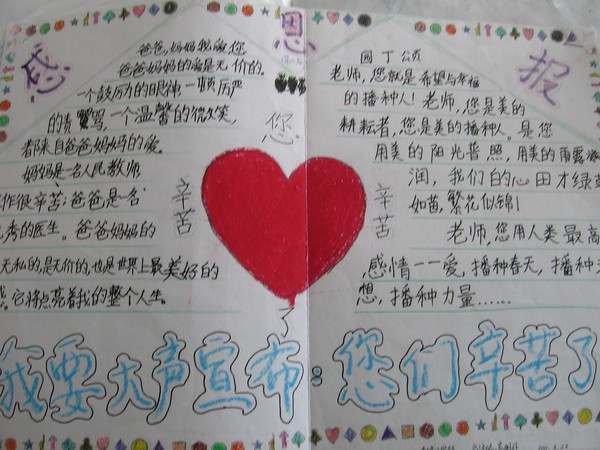 感 恩 报
爸爸,妈妈我爱您
爸爸妈妈的爱是无价的.
一个鼓厉的眼神一顿厉严
的责骂,一个温馨的微笑,
都来自爸爸妈妈的爱.
妈妈是一名人民教师,
作很辛苦;爸爸是名
秀的医生。爸爸妈妈的
无私的,是无价的,也是世界上最美好的
它将点亮着我的整个人生.
您
辛苦
辛苦
了
园丁颂
老师,您就是希望与幸福
的播种人!老师,您是美的
耕耘者,您是美的播种人。是您
用美的阳光普照,用美的雨露滋
润,我们的心田才绿
如茵,繁花似锦!
老师,您用人类最高
感情一一爱,播种春天,播种
想,播种力量……
我要大声宣布:您们辛苦了